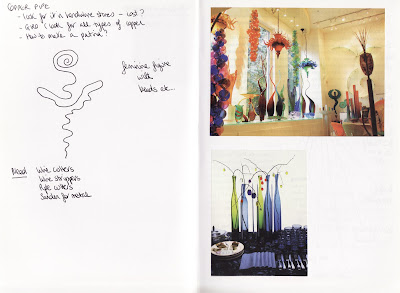 COPPER PIPE
- look for it in hardware stores - cost?
- also look for all types of copper
- How to make a patina?
feminine figure
with
beads etc...
Need Wire cutters
Wire strippers
Pipe cutters
Solder for metal